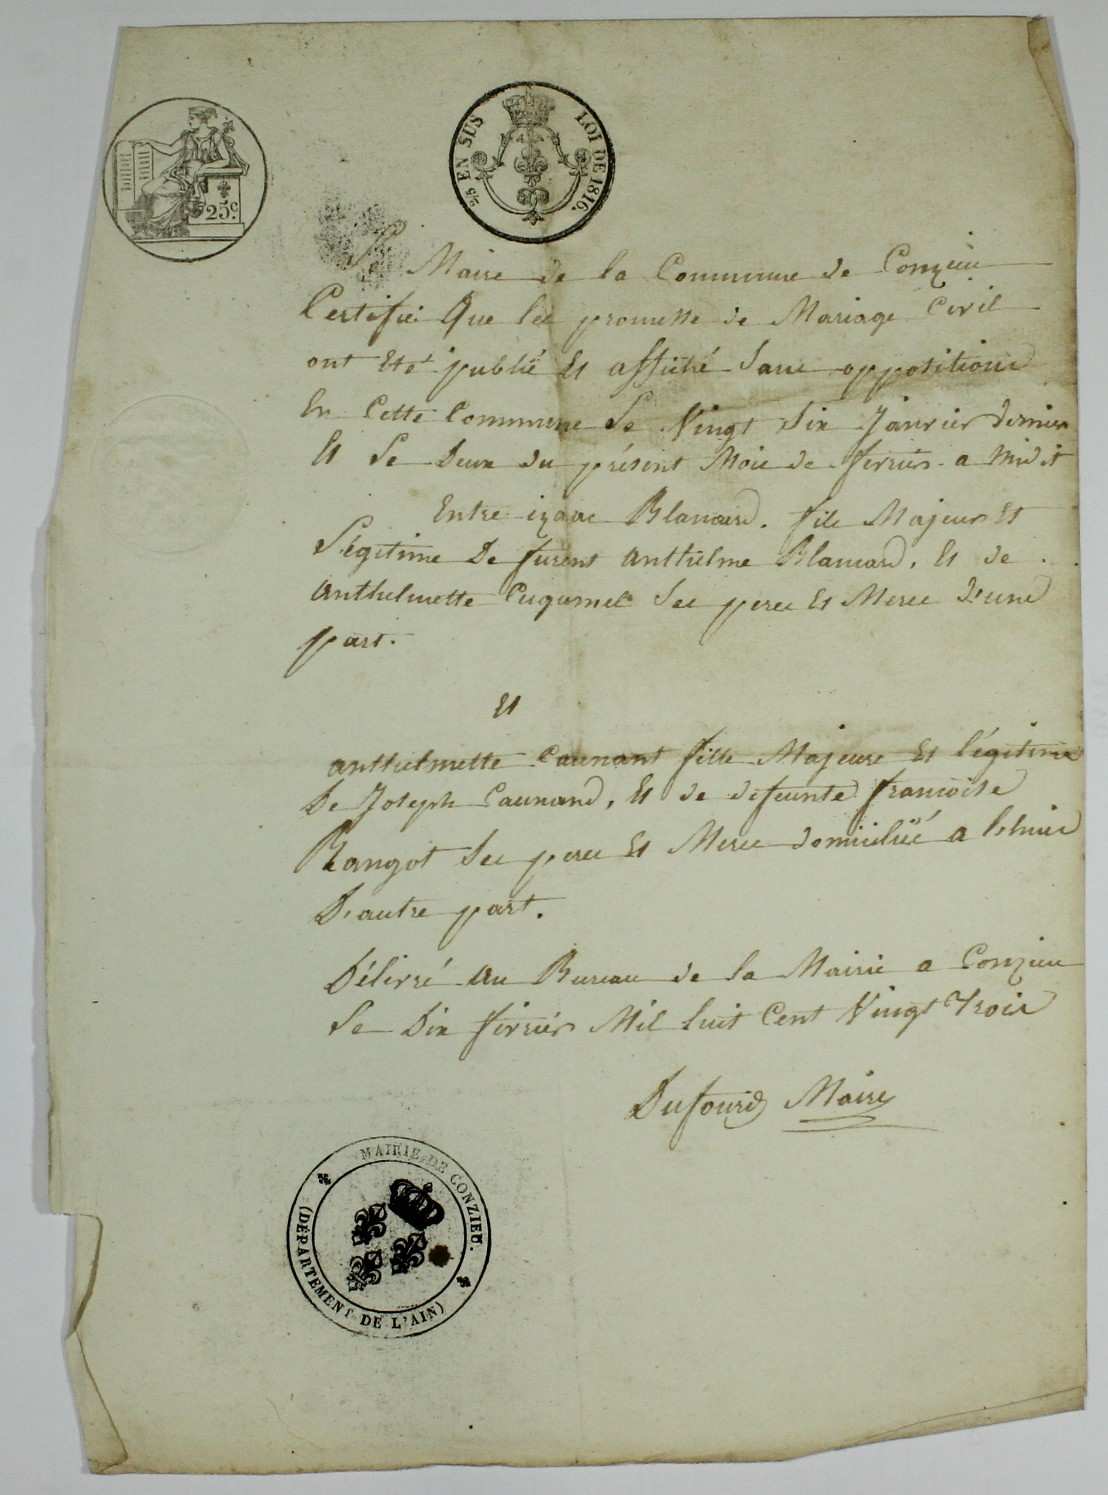 25c.
2/5 EN SUS LOI DE 1816.
Le Maire de la Commune de Conzieu
Certifie Que les promesse de Mariage Civil
ont Eté publié Et affiché Sans oppositions
En Cette Commune Le Vingt Six Janvier dernier
Et Le Deux du présent Mois de fevrier a Midit
Entre izaac Blancard. fils Majeur Et
Légitime De furent anthelme Blancard, Et de
anthelmette Ses peres Et Meres D'une
part.
Et
anthelmette Caunant fille Majeure Et légitime
De Joseph Caunand, Et de defeunte francoise
Rangot Ses peres Et Meres domiciliés a
D'autre part.
Délivré au Bureau de la Mairie a Conzieu
Le Dix fevrier Mil huit Cent Vingt Trois
Dufourd Maire
MAIRIE DE CONZIEU.
(DÉPARTEMENT DE L'AIN)